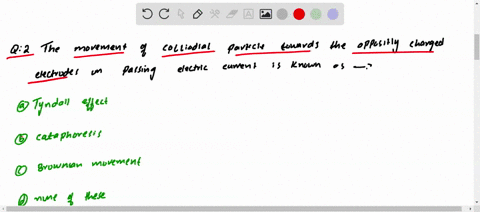 Q:2 The movement of colliadial particle towards the oppositly charged
electrodes on passing electric current is known as —:
(a) Tyndall effect
(b) Cataphoresis
(c) Brownian movement
(d) none of these